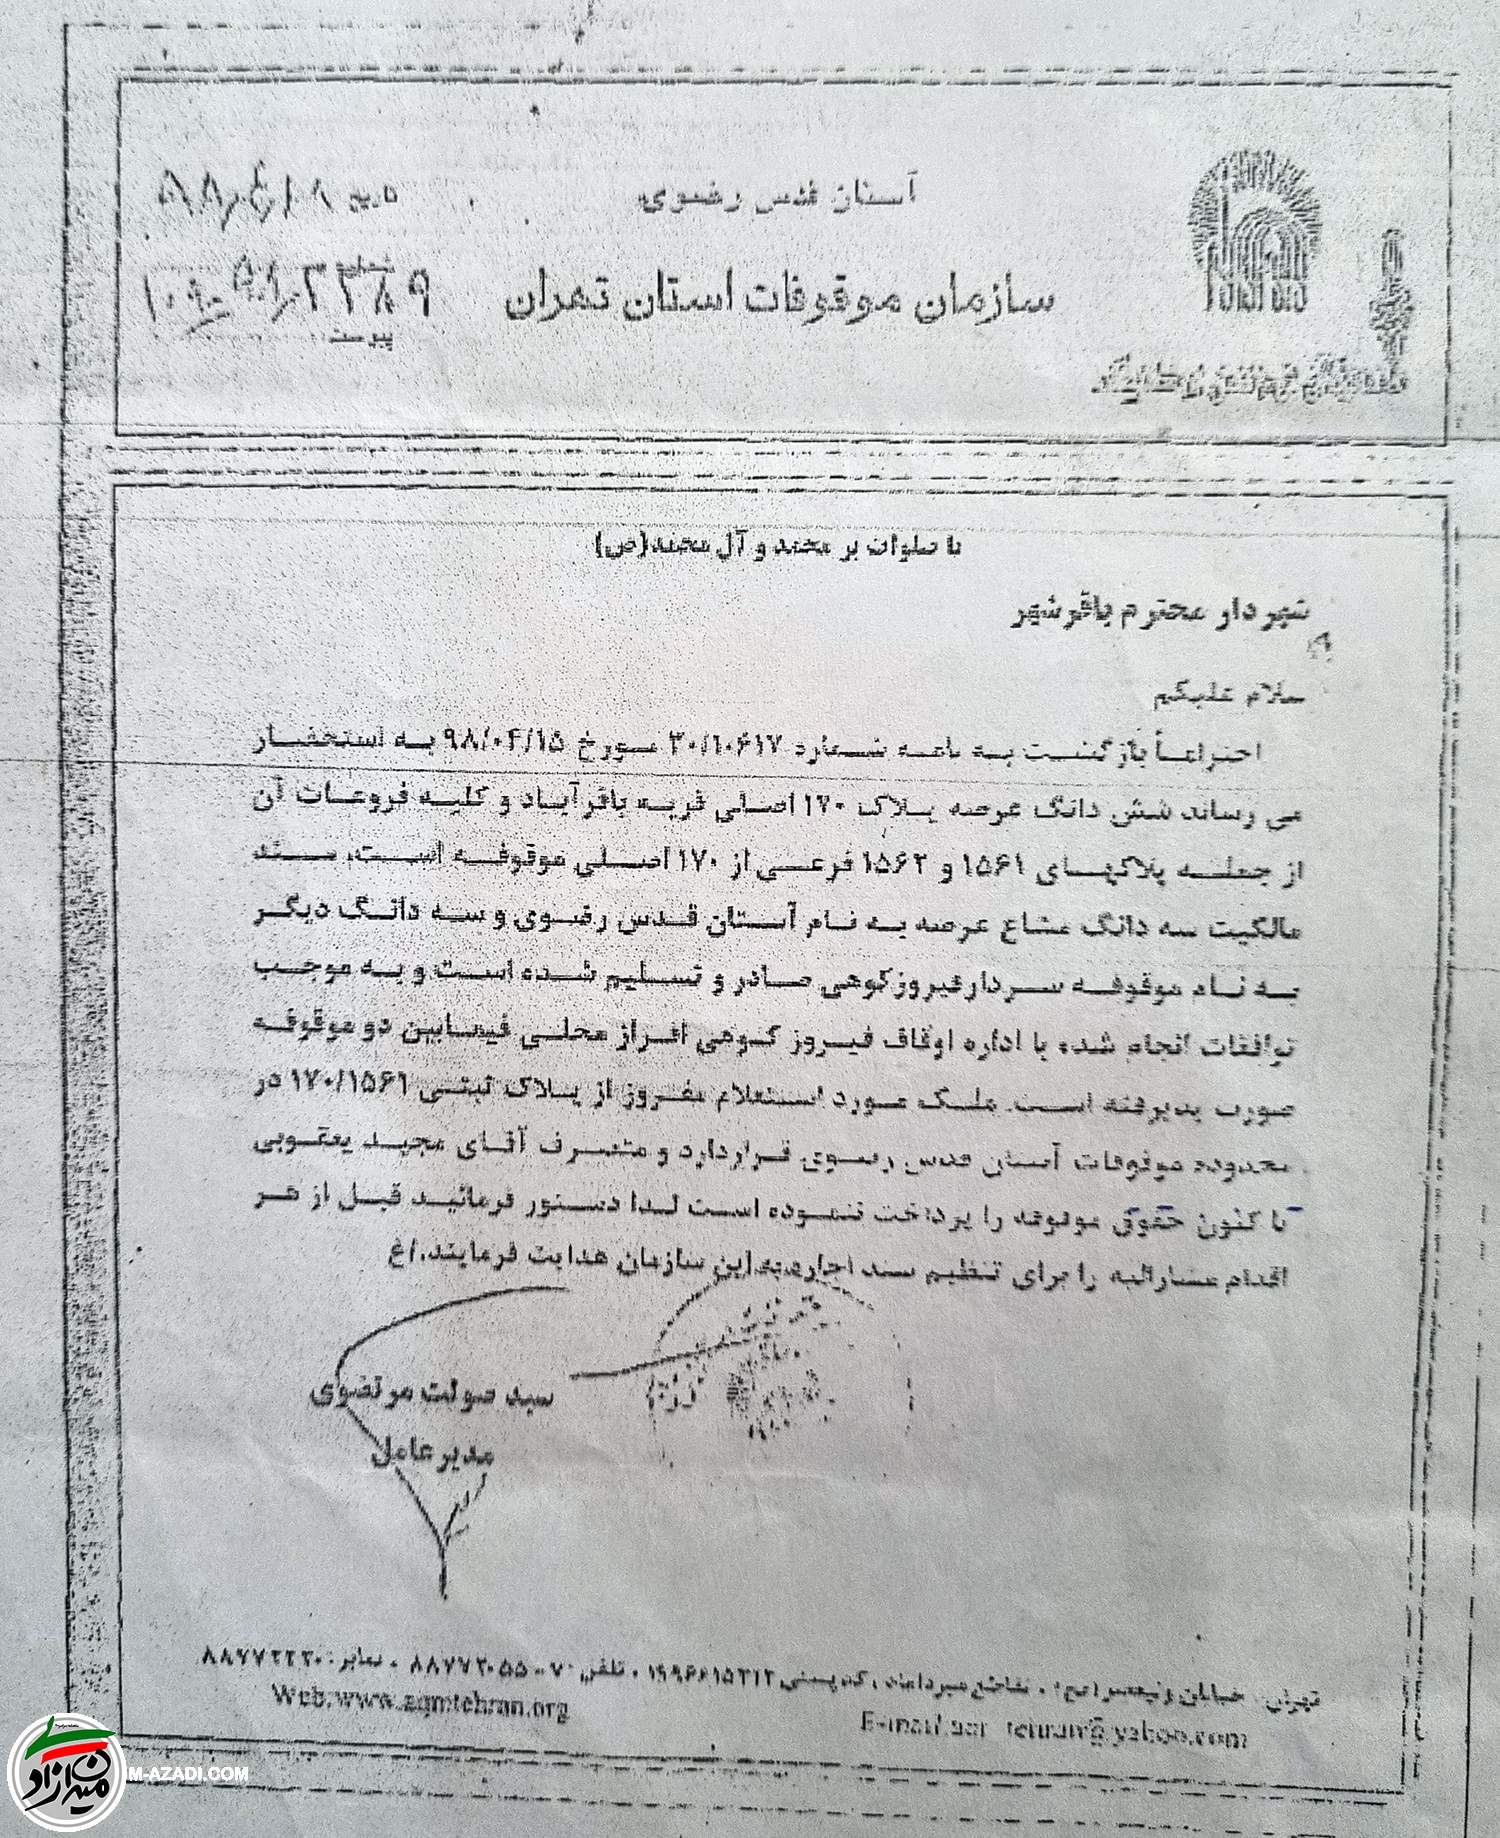 آستان قدس رضوی
سازمان موقوفات استان تهران
تاریخ ۹۸/۴/۱۸
شماره
پیوست
با صلوات بر محمد و آل محمد(ص)
شهردار محترم باقرشهر
سلام علیکم
احتراماً بازگشت به نامه شماره ۳۰/۱۰۶۱۷ مورخ ۹۸/۰۴/۱۵ به استحضار
می رساند شش دانگ عرصه پلاک ۱۷۰ اصلی قریه باقرآباد و کلیه فروعات آن
از جمله پلاکهای ۱۵۶۱ و ۱۵۶۲ فرعی از ۱۷۰ اصلی موقوفه است، سند
مالکیت سه دانگ مشاع عرصه به نام آستان قدس رضوی و سه دانگ دیگر
به نام موقوفه سردارفیروزکوهی صادر و تسلیم شده است و به موجب
توافقات انجام شده با اداره اوقاف فیروز کوهی افراز محلی فیمابین دو موقوفه
صورت پذیرفته است. ملک مورد استعلام مفروز از پلاک ثبتی ۱۷۰/۱۵۶۱ در
محدوده موقوفات آستان قدس رضوی قراردارد و متصرف آقای مجید یعقوبی
تا کنون حقوق موقوفه را پرداخت ننموده است لذا دستور فرمائید قبل از هر
اقدام مشارالیه را برای تنظیم سند اجاره به این سازمان هدایت فرمایند./غ
سید صولت مرتضوی
مدیرعامل
تهران: خیابان ولیعصر(عج)، تقاطع میرداماد، کدپستی ۱۹۹۶۶۱۵۳۱۳، تلفن: ۷-۸۸۷۷۳۰۵۵، نمابر: ۸۸۷۷۲۲۲۰
E-mail:aqr_tehran@yahoo.com
Web:www.aqmtehran.org
میهن آزاد
M-AZADI.COM